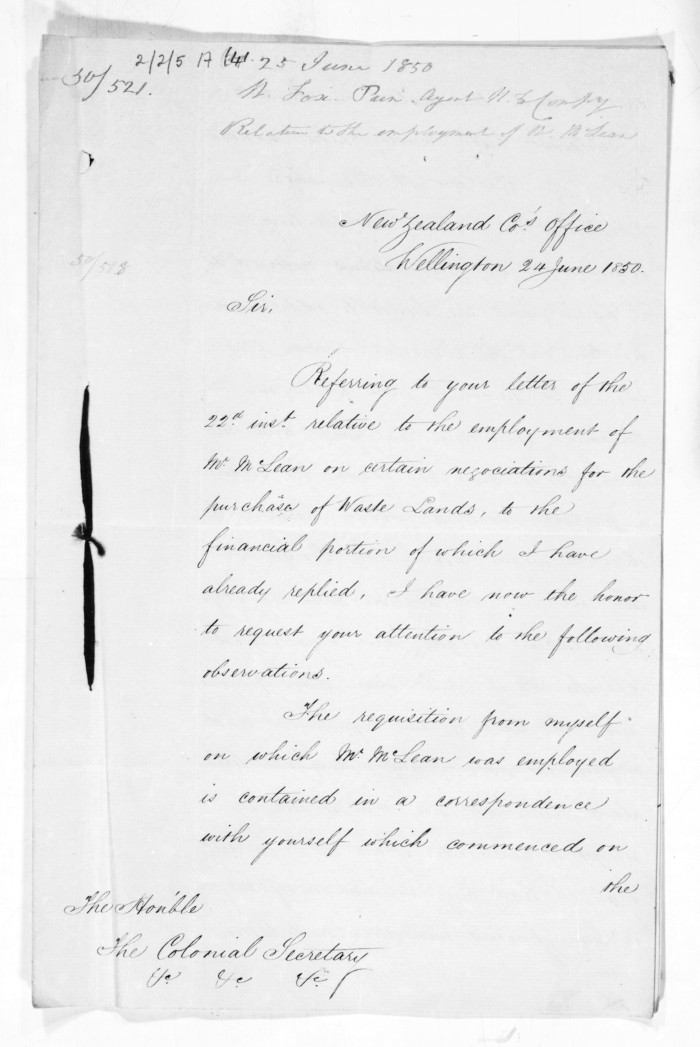 2/2/5 A (4) 25 June 1850
50/521.
W. Fox Prin. Agent N. Z. Compy
Relative to the employment of Mr McLean
New Zealand Co.'s Office
Wellington 24 June 1850.
50/518
Sir,
Referring to your letter of the
22d inst. relative to the employment of
Mr. McLean on certain negociations for the
purchase of Waste Lands, to the
financial portion of which I have
already replied, I have now the honor
to request your attention to the following
observations.
The requisition from myself
on which Mr. McLean was employed
is contained in a correspondence
with yourself which commenced on
the
The Honble
The Colonial Secretary
&c &c &c